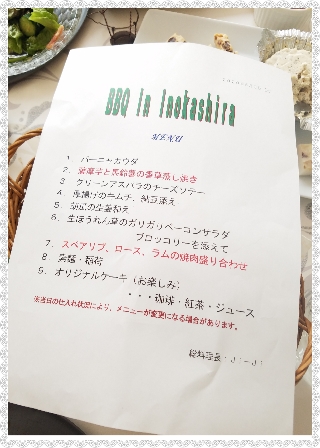 BBQ in Inokashira
MENU
1. バーニャカウダ
2. 薩摩芋と馬鈴薯の香草蒸し焼き
3 グリーンアスパラのチーズソテー
4. 厚揚げのキムチ、納豆添え
5.
6. 生ほうれん草のガリガリベーコンサラダ
ブロッコリーを添えて
7. スペアリブ、ロース、ラムの焼肉盛り合わせ
8 ・稲荷
9. オリジナルケーキ(お楽しみ)
・・・珈琲・紅茶・ジュース
※当日の仕入れ状況により、メニューが変更になる場合があります。
総料理長：J・-J・